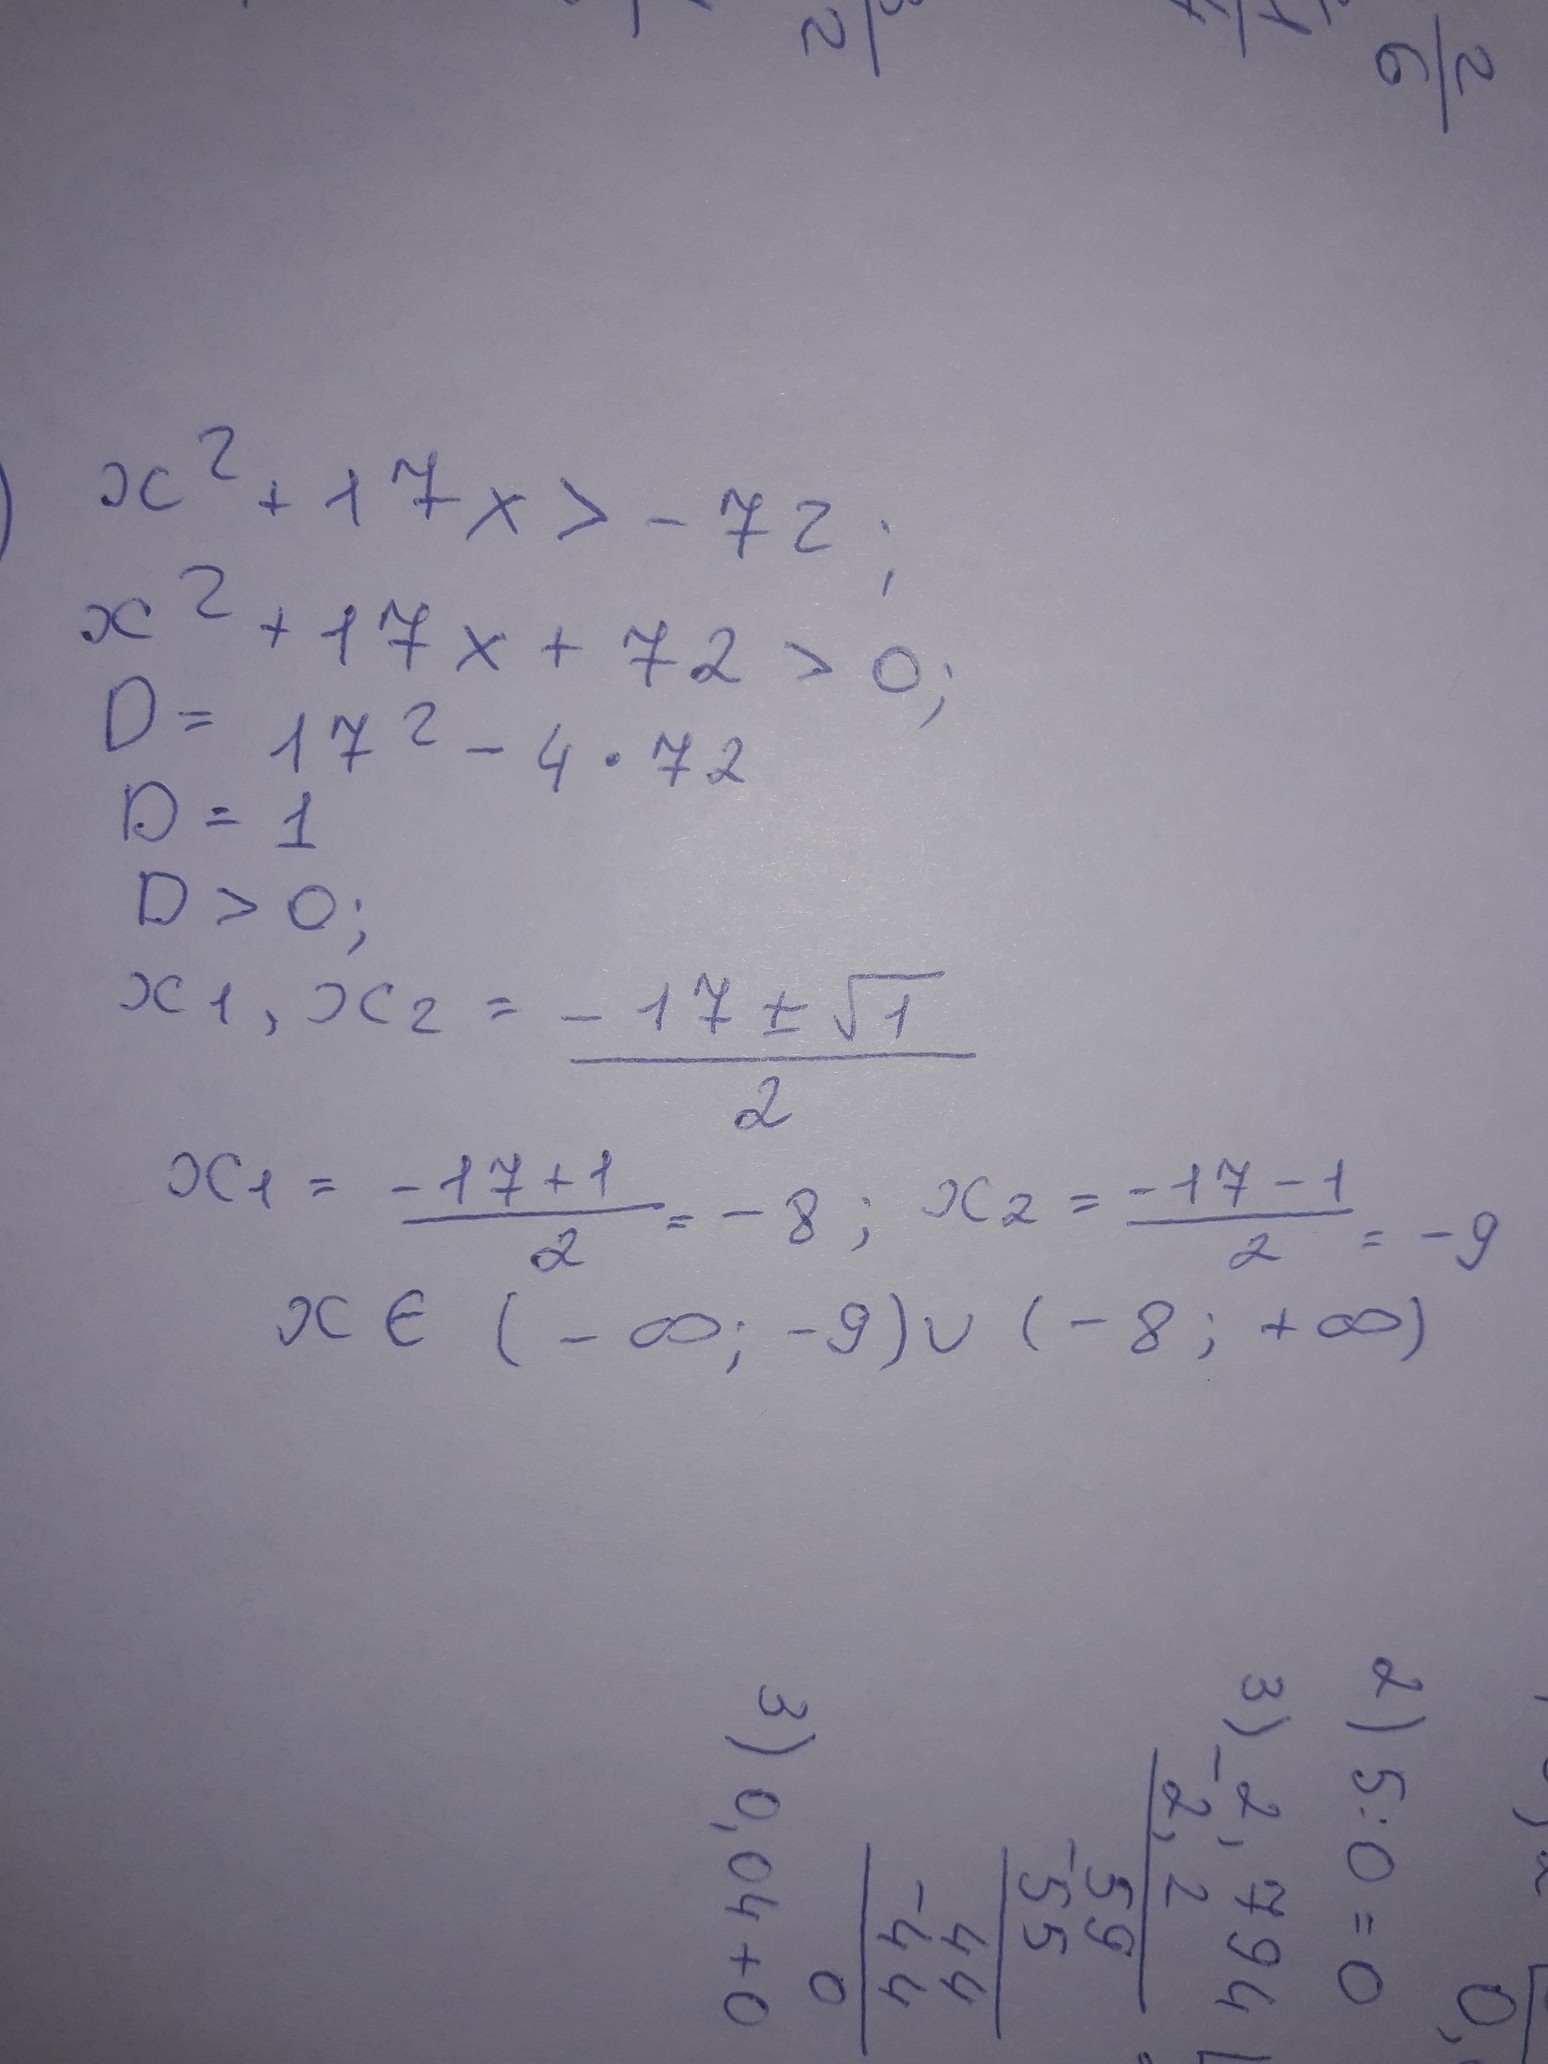 x² + 17x > - 72 ;
x² + 17x + 72 > 0;
D = 17² - 4 · 72
D = 1
D > 0;
x1, x2 = (-17 ± √1) / 2
x1 = (-17+1) / 2 = - 8 ; x2 = (-17-1) / 2 = -9
x ∈ (-∞; -9) ∪ (-8; +∞)
2) 5:0=0
3) -2,794
2,2
59
-55
44
-44
0
3) 0,04+0